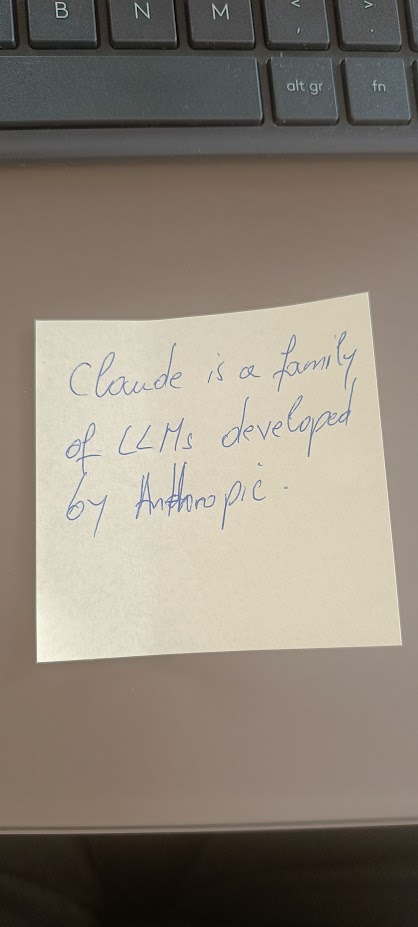 B N M < >
, .
alt gr fn
Claude is a family
of LLMs developed
by Anthropic.